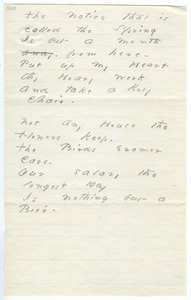 The notice that is
called the Spring
Is but a month
from here -
Put up my Heart
thy Hoary work
And take a Rosy
Chair.
Not any House the
Flowers keep -
The Birds enamor
Care -
Our salary the
longest Day
Is nothing but a
Bier -